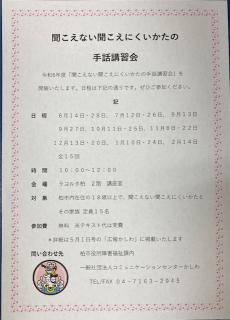 聞こえない聞こえにくいかたの
手話講習会
※令和6年度「聞こえない聞こえにくいかたの手話講習会」を
開催いたします。日程は下記の通りです。ぜひご参加ください。
記
日 程 6月14日・28日、7月12日・26日、9月13日
9月27日、10月11日・25日、11月8日・22日
12月13日・20日、1月10日・24日、2月14日
全15回
時 間 10:00~12:00
会 場 ラコルタ柏 2階 講習室
対 象 柏市内在住の18歳以上で、聞こえない聞こえにくいかたと
その家族 定員15名
参加費 無料 ※テキスト代は実費
*詳細は5月1日号の「広報かしわ」に掲載いたします
問い合わせ先 柏市役所障害福祉課内
一般社団法人コミュニケーションセンターかしわ
TEL/FAX 04-7163-2945